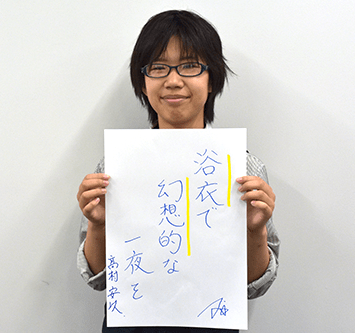 浴衣で
幻想的な
一夜を
高村